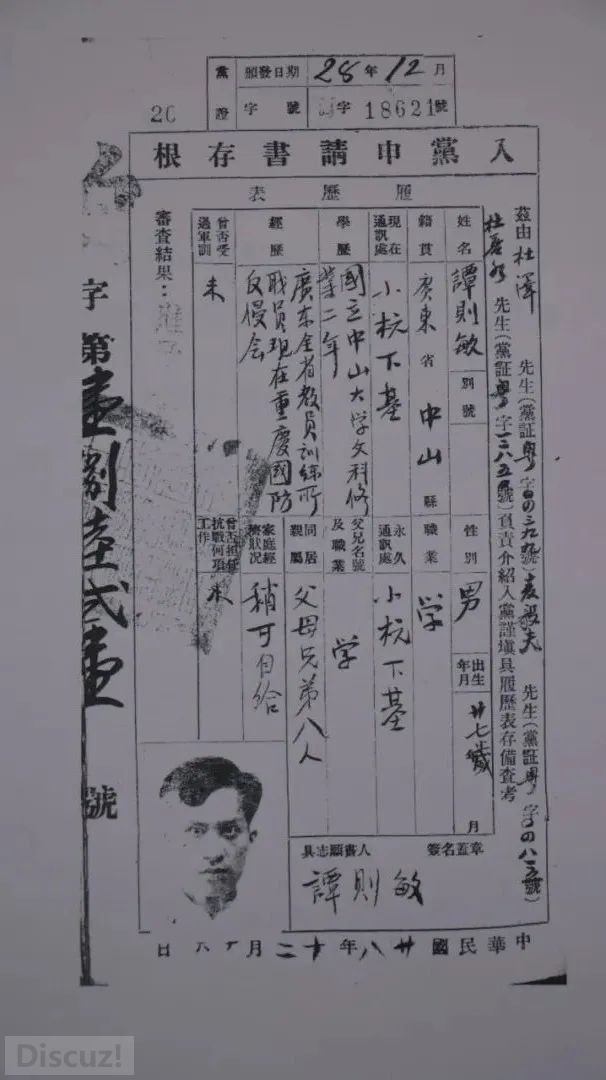 黨證
頒發日期 28年12月
字號 字18621號
20
入黨申請書存根
履歷表
茲由杜澤 先生(黨証粵字
先生(黨証粵字
先生(黨証粵字
號)負責介紹入黨謹塡具履歷表存備查考
姓名 譚則敏 別號
性別 男 出生年月 廿七歲 月
籍貫 廣東省中山縣
職業 学
現在通訊處 小杬下基
永久通訊處 小杬下基
學歷 國立中山大学文科修業二年
父兄名號及職業 学
經歷 廣东全省教員訓練所職員現在重慶國防反侵会
同居親屬 父母兄弟八人
家庭經濟狀況 稍可自給
曾否受過軍訓 未
曾否担任抗戰何項工作 未
審查結果:
具志願書人 簽名蓋章
譚則敏
中華民國廿八年十二月 日
字第壹捌陸弍壹號
Discuz!